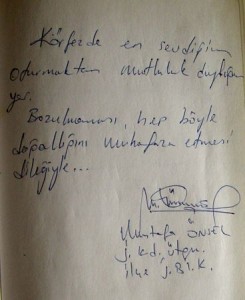 Körfezde en sevdiğim
oturmaktan mutluluk duyduğum
yer.
Bozulmaması, hep böyle
doğallığını muhafaza etmesi
dileğiyle...
Mustafa ÖNSEL
J. Kd. Ütğm.
İlçe J. Bl. K.